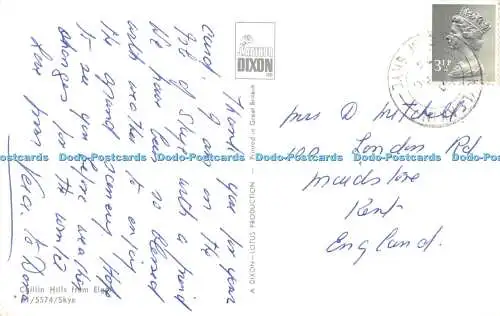 Thank you for your
card. I am on the
Isle of Skye with a friend
We have been so blessed
with weather to enjoy
the grand scenery Hope
to see you before weather
changes for the winter
Love from Vera. to Dora
Cuillin Hills from Elgol
/5574/Skye
ARTHUR
DIXON
A DIXON-LOTUS PRODUCTION
Printed in Great Britain
3½P
Mrs D Mitchell
London Rd
Maidstone
Kent
England.
Dodo-Postcards Dodo-Postcards Dodo-Postcards Dodo-Postcards Dodo-Postcards